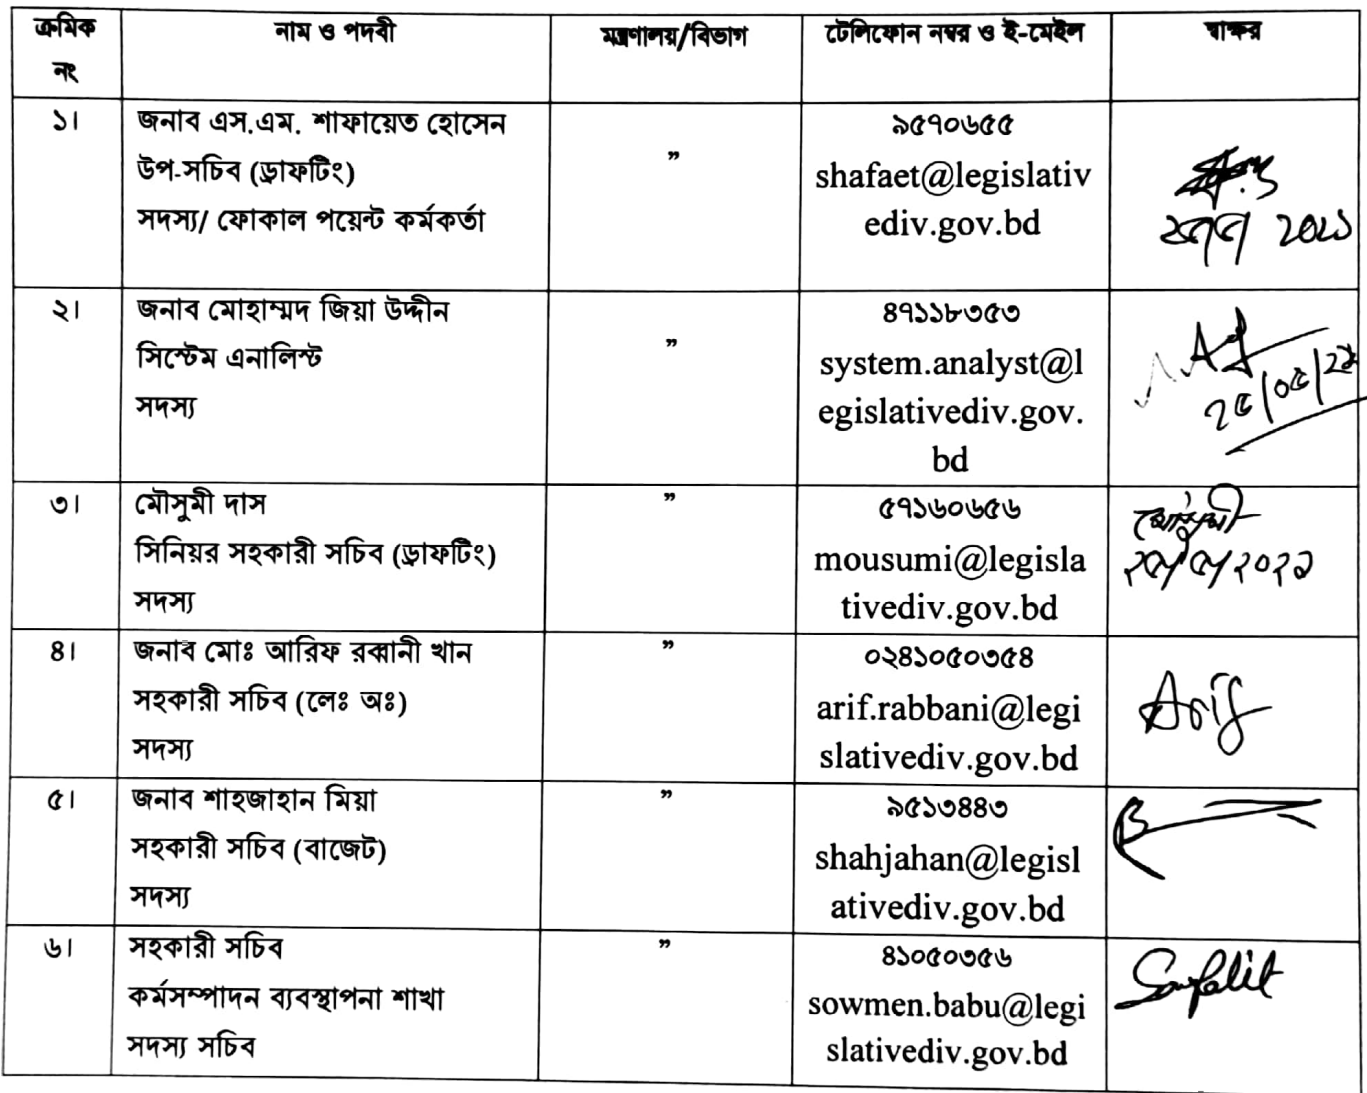 ক্রমিক নং নাম ও পদবী মন্ত্রণালয়/বিভাগ টেলিফোন নম্বর ও ই-মেইল স্বাক্ষর
১। জনাব এস.এম. শাফায়েত হোসেন
উপ-সচিব (ড্রাফটিং)
সদস্য/ ফোকাল পয়েন্ট কর্মকর্তা
”
৯৫৭০৬৫৫
shafaet@legislativ
ediv.gov.bd
২। জনাব মোহাম্মদ জিয়া উদ্দীন
সিস্টেম এনালিস্ট
সদস্য
”
৪৭১১৮৩৫৩
system.analyst@l
egislativediv.gov.
bd
৩। মৌসুমী দাস
সিনিয়র সহকারী সচিব (ড্রাফটিং)
সদস্য
”
৫৭১৬০৬৫৬
mousumi@legisla
tivediv.gov.bd
মৌসুমী
৪। জনাব মোঃ আরিফ রব্বানী খান
সহকারী সচিব (লেঃ অঃ)
সদস্য
”
০২৪১০৫০৩৫৪
arif.rabbani@legi
slativediv.gov.bd
Arif
৫। জনাব শাহজাহান মিয়া
সহকারী সচিব (বাজেট)
সদস্য
”
৯৫১৩৪৪৩
shahjahan@legisl
ativediv.gov.bd
৬। সহকারী সচিব
কর্মসম্পাদন ব্যবস্থাপনা শাখা
সদস্য সচিব
”
৪১০৫০৩৫৬
sowmen.babu@legi
slativediv.gov.bd